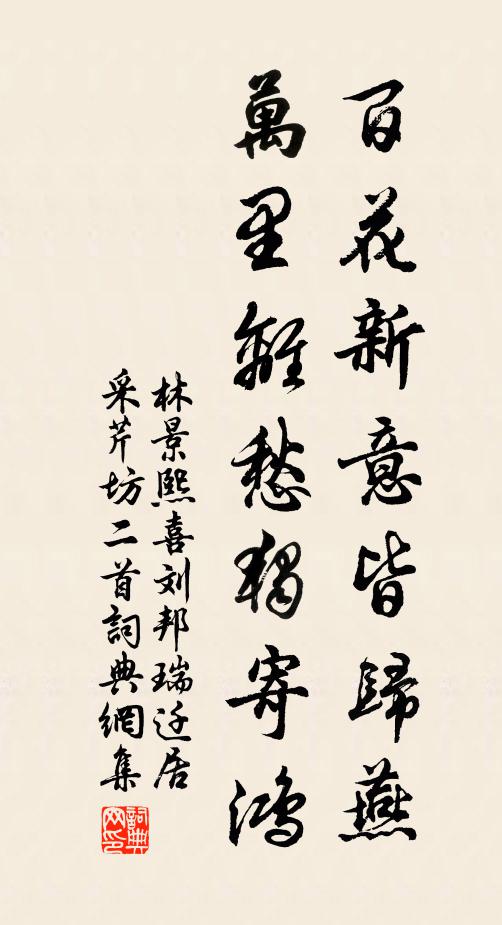 百花新意皆歸燕
萬里離愁獨寄鴻
林景熙喜刘邦瑞迁居
采芹坊二首詞典網集
詞典網印